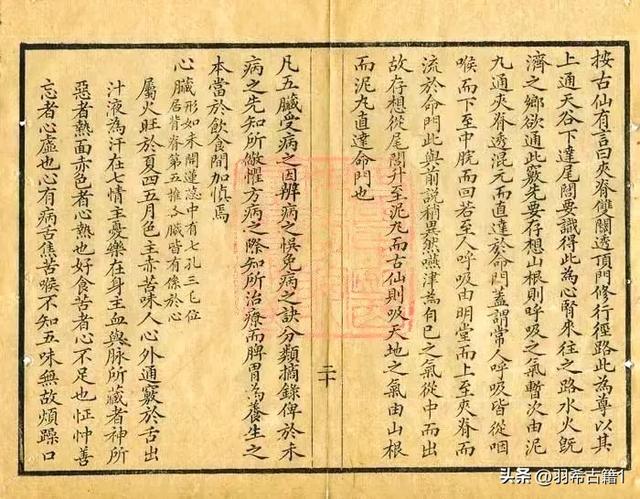 按古仙有言曰夾脊雙關透頂門修行徑路此為尊以其
上通天谷下達尾閭要識得此為心腎來往之路水火旣
濟之鄉欲通此竅先要存想山根則呼吸之氣暫次由泥
九通夾脊透混元而直達於命門蓋謂常人呼吸皆從咽
喉而下至中脘而回若至人呼吸由明堂而上至夾脊而
流於命門此與前說稍異然嚥津為自已之氣從中而出
故存想從尾閭升至泥九而古仙則吸天地之氣由山根
而泥九直達命門也
二十
凡五臟受病之因辨病之悞免病之訣分類摘錄俾於未
病之先知所儆懼方病之際知所治療而脾胃為養生之
本當於飲食間加慎焉
心臟形如未開蓮蕊中有七孔三毛位
居背脊第五推各臟皆有係於心
屬火旺於夏四五月色主赤苦味人心外通竅於舌出
汁液為汗在七情主憂樂在身主血與脉所藏者神所
惡者熱面赤色者心熱也好食苦者心不足也怔忡善
忘者心虛也心有病舌焦苦喉不知五味無故煩躁口
头条 @羽希古籍1